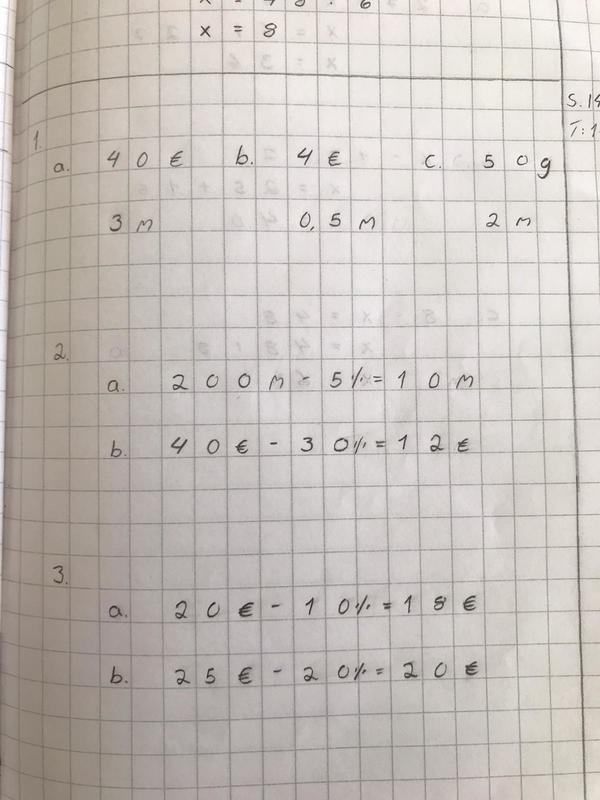 x = 48 : 6
x = 8
S. 14
T: 1
1.
a. 40 € b. 4 € c. 50 g
3 m 0,5 m 2 m
2.
a. 200 m - 5% = 10 m
b. 40 € - 30% = 12 €
3.
a. 20 € - 10% = 18 €
b. 25 € - 20% = 20 €